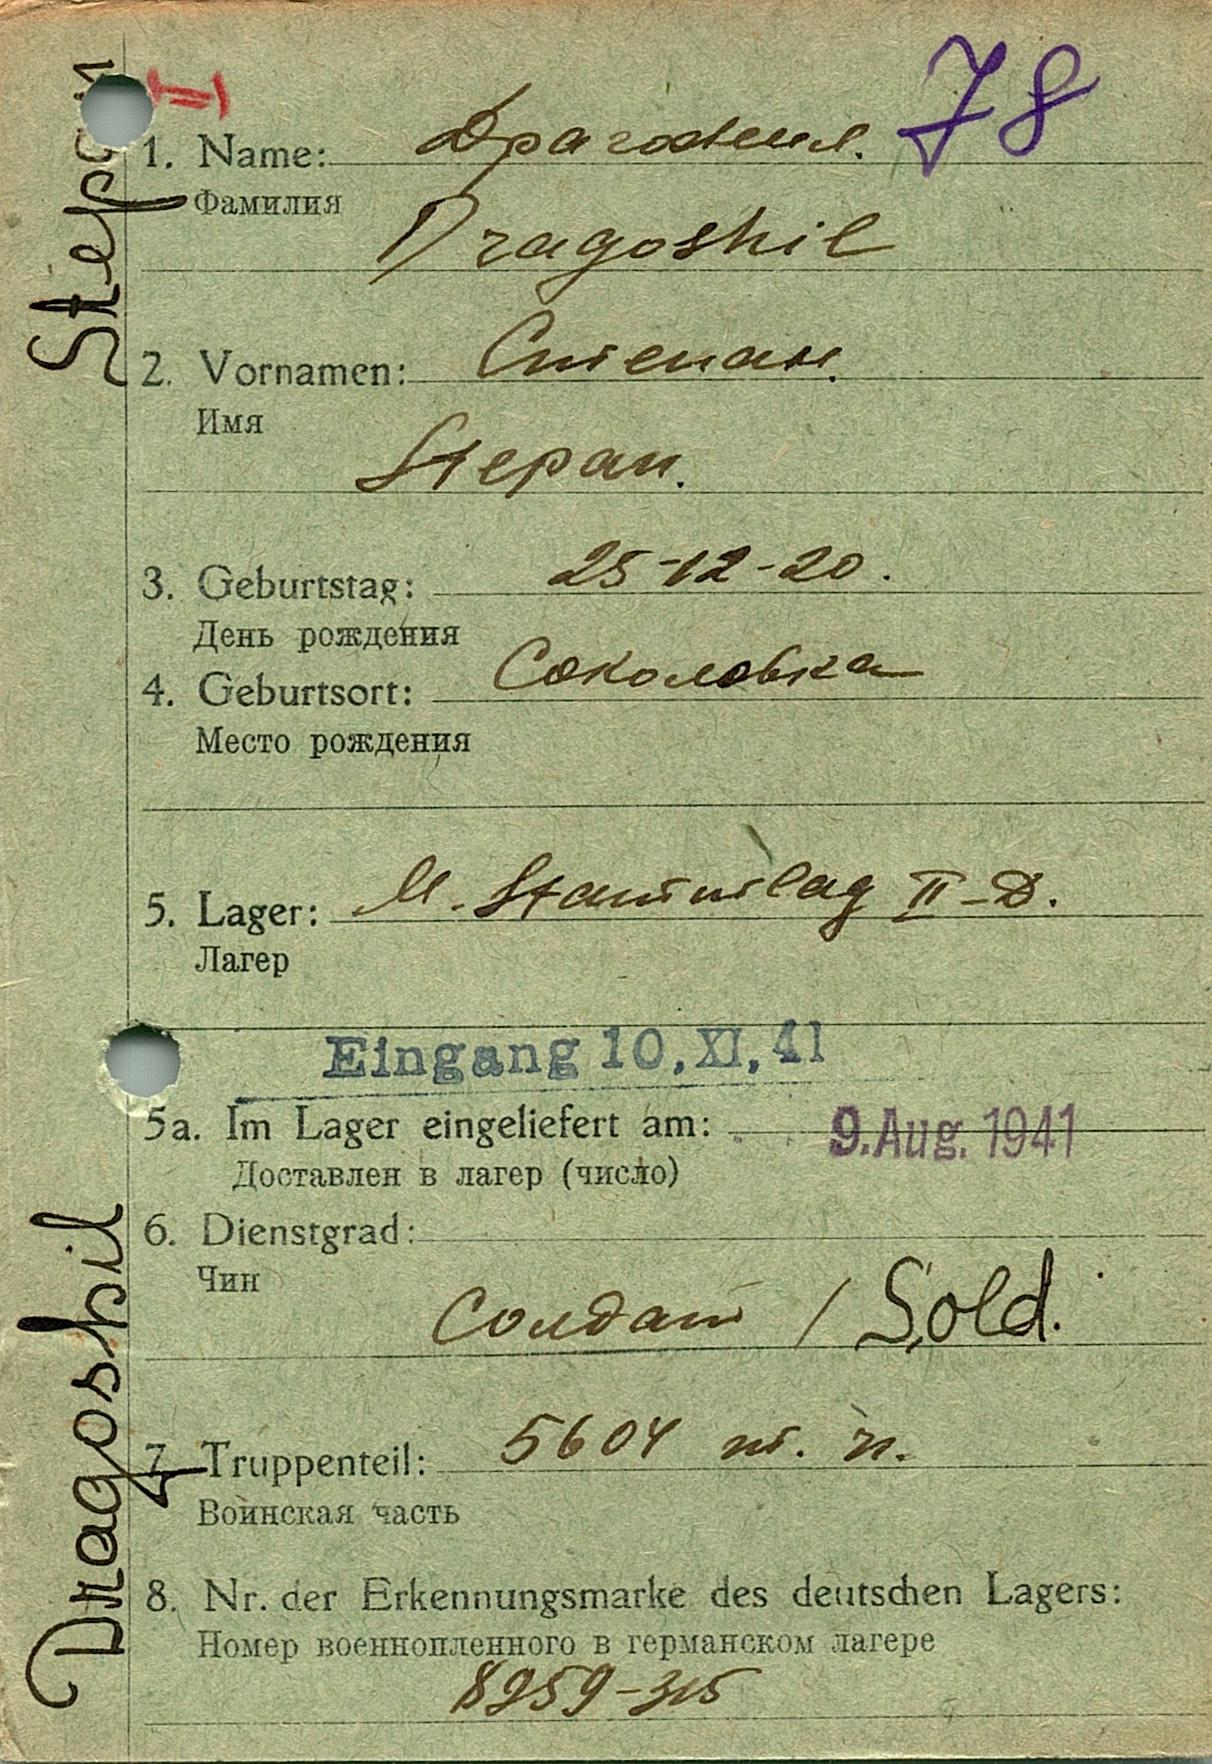 II
78
1. Name: Драгошил.
Фамилия
Dragoshil
2. Vornamen: Степан.
Имя
Stepan.
3. Geburtstag: 25-12-20.
День рождения
4. Geburtsort: Соколовка
Место рождения
5. Lager: M. Stammlag II-D.
Лагер
Eingang 10.XI.41
5a. Im Lager eingeliefert am: 9. Aug. 1941
Доставлен в лагер (число)
6. Dienstgrad:
Чин
Солдат / Sold.
7. Truppenteil: 5604 т. п.
Воинская часть
8. Nr. der Erkennungsmarke des deutschen Lagers:
Номер военнопленного в германском лагере
8259-315
Dragoshil Stepan